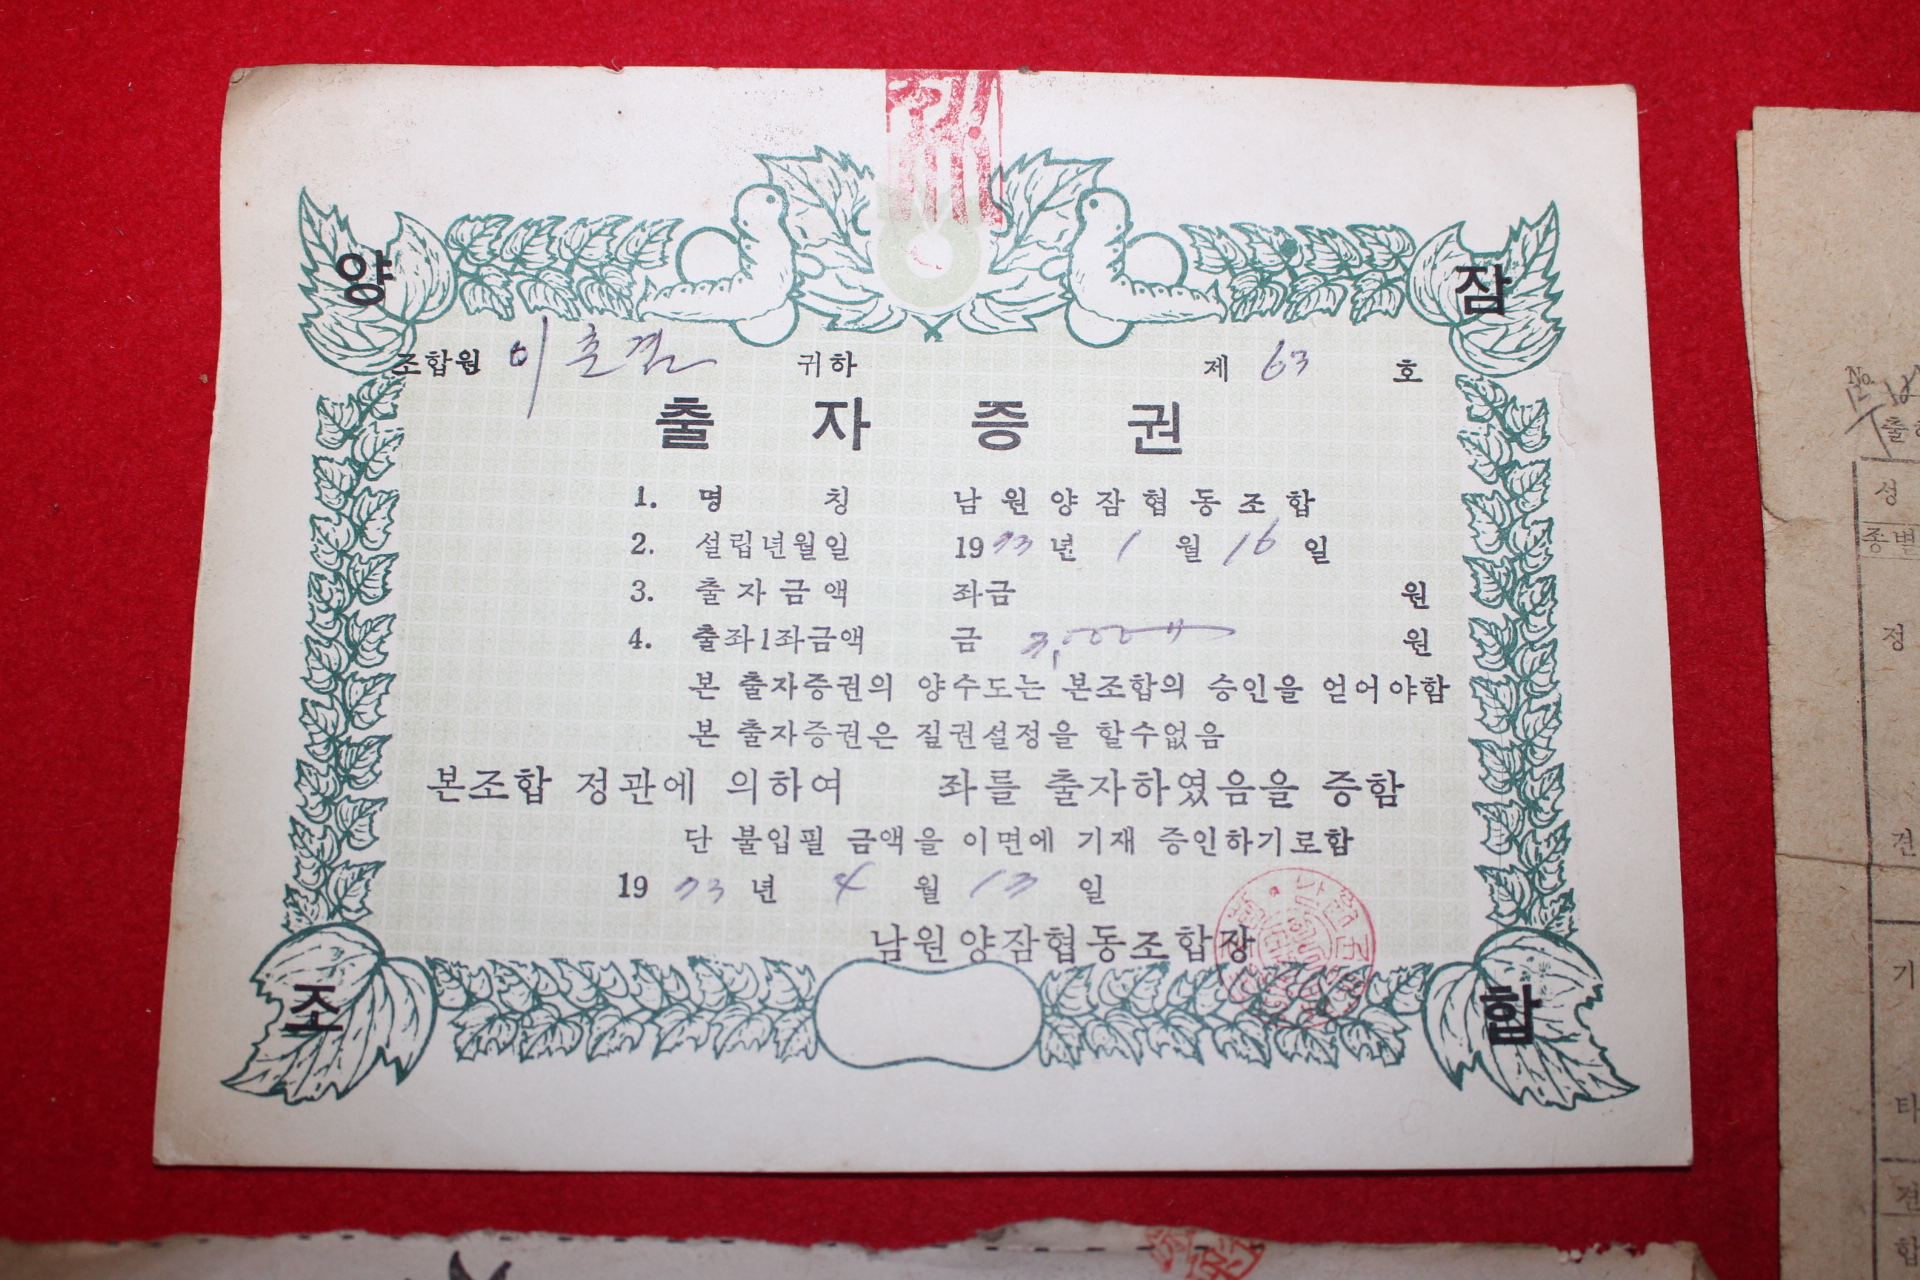 양 잠
조합원 이춘 귀하 제 63 호
출자증권
1. 명 칭 남원양잠협동조합
2. 설립년월일 1973년 1월 16일
3. 출자금액 좌금 원
4. 출좌1좌금액 금 원
본 출자증권의 양수도는 본조합의 승인을 얻어야함
본 출자증권은 질권설정을 할수없음
본조합 정관에 의하여 좌를 출자하였음을 증함
단 불입필 금액을 이면에 기재 증인하기로함
1973년 4월 13일
남원양잠협동조합장
조 합
No.
출
성
종별
정
견
기
타
견
합